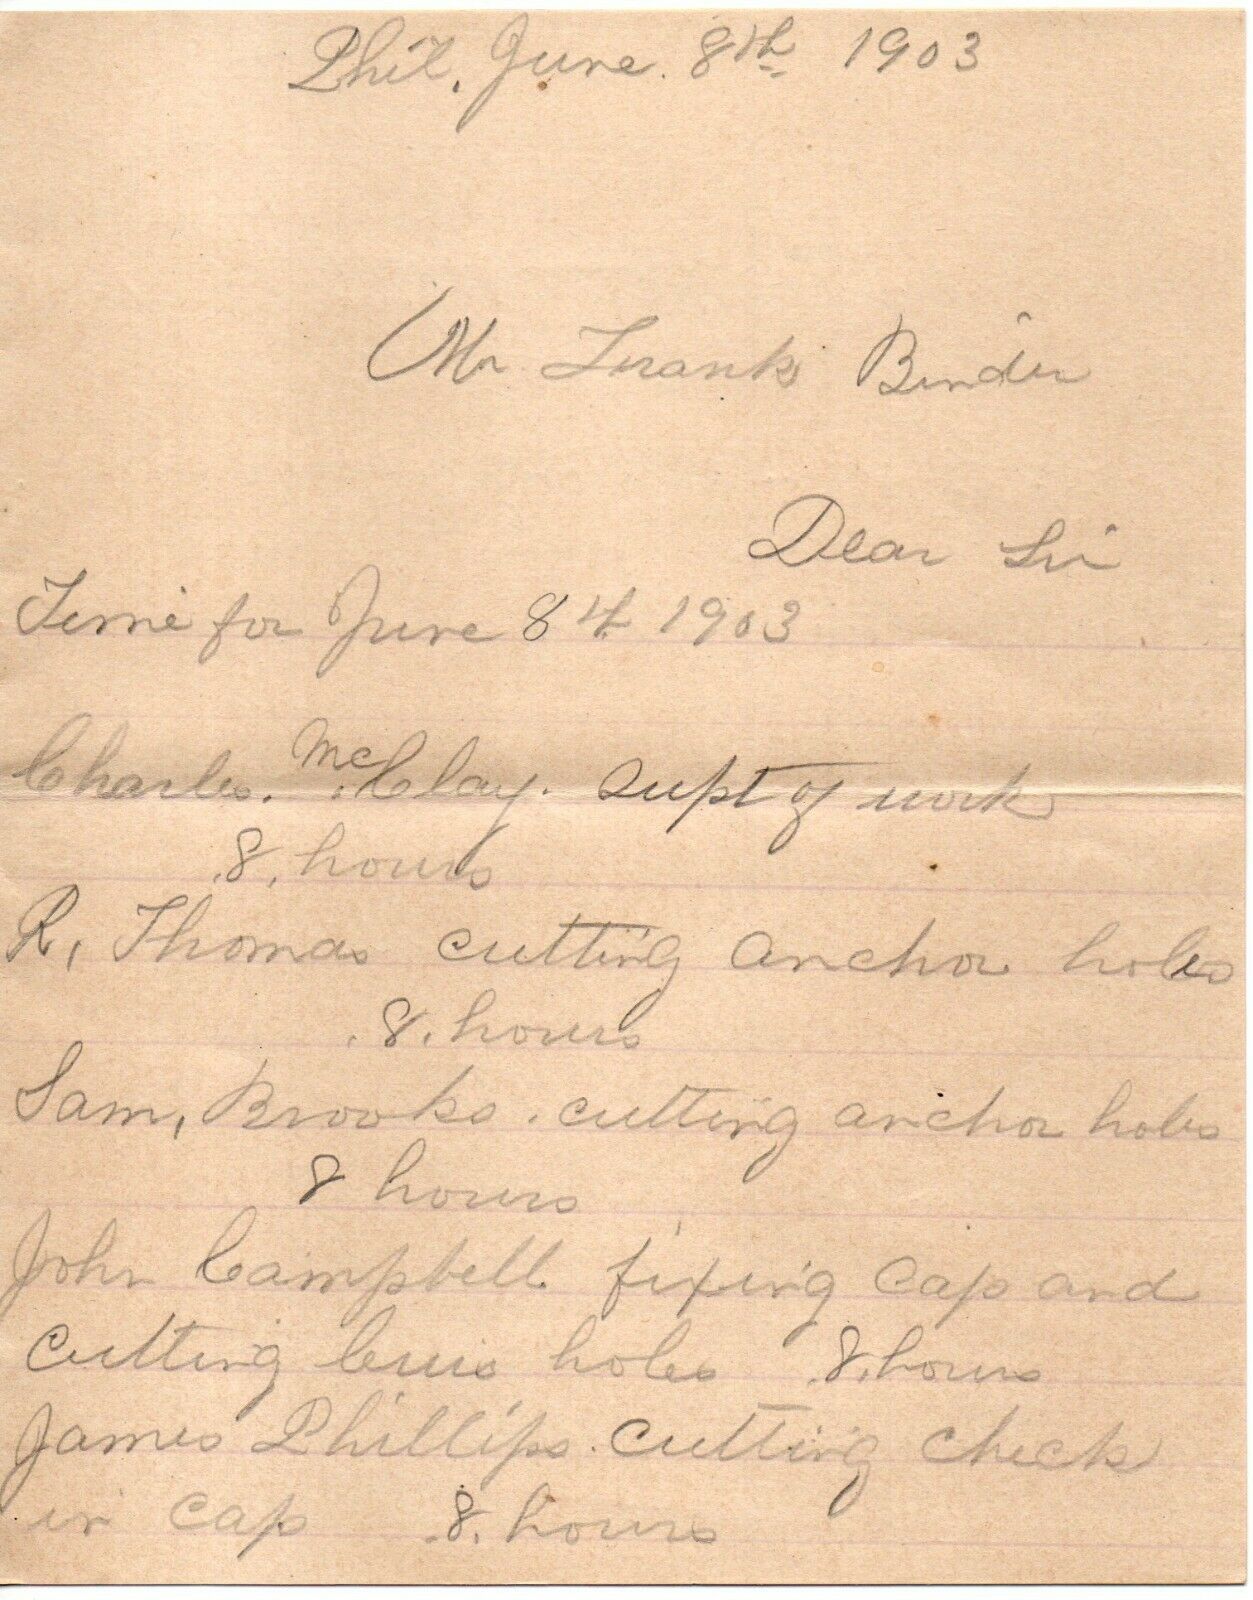 Phil, June. 8th 1903
Mr Frank Binder
Dear Sir
Time for June 8th 1903
Charles. McClay. Supt of work
.8. hours
R, Thomas cutting anchor holes
.8. hours
Sam, Brooks. cutting anchor holes
8 hours
John Campbell fixing cap and
cutting lewis holes .8. hours
James Phillips. cutting check
in cap .8. hours